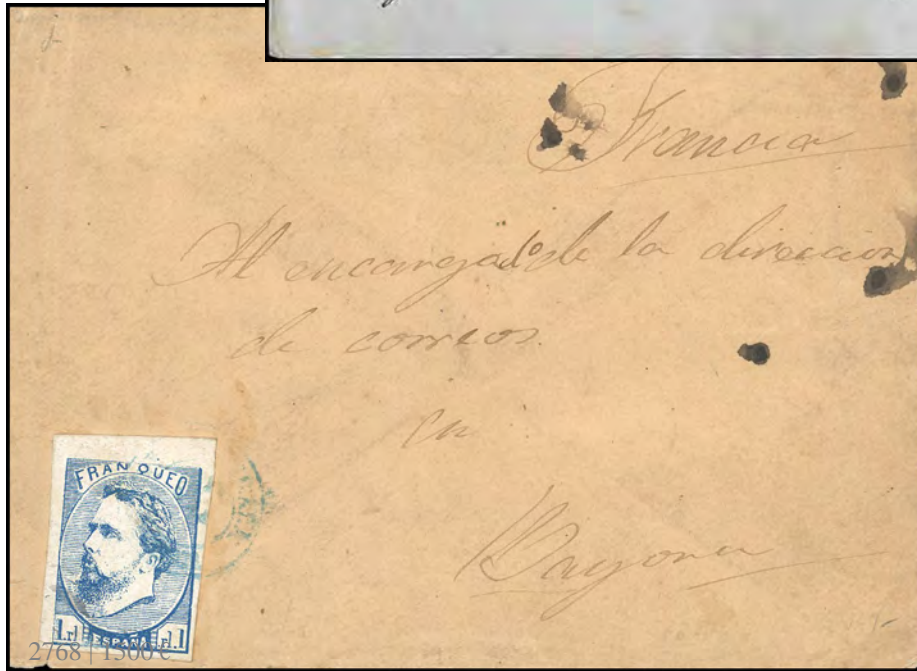 Francia
Al encargado de la direccion
de correos.
en
Bayona
FRANQUEO
1 rl ESPAÑA rl. 1
2768 | 1500 €